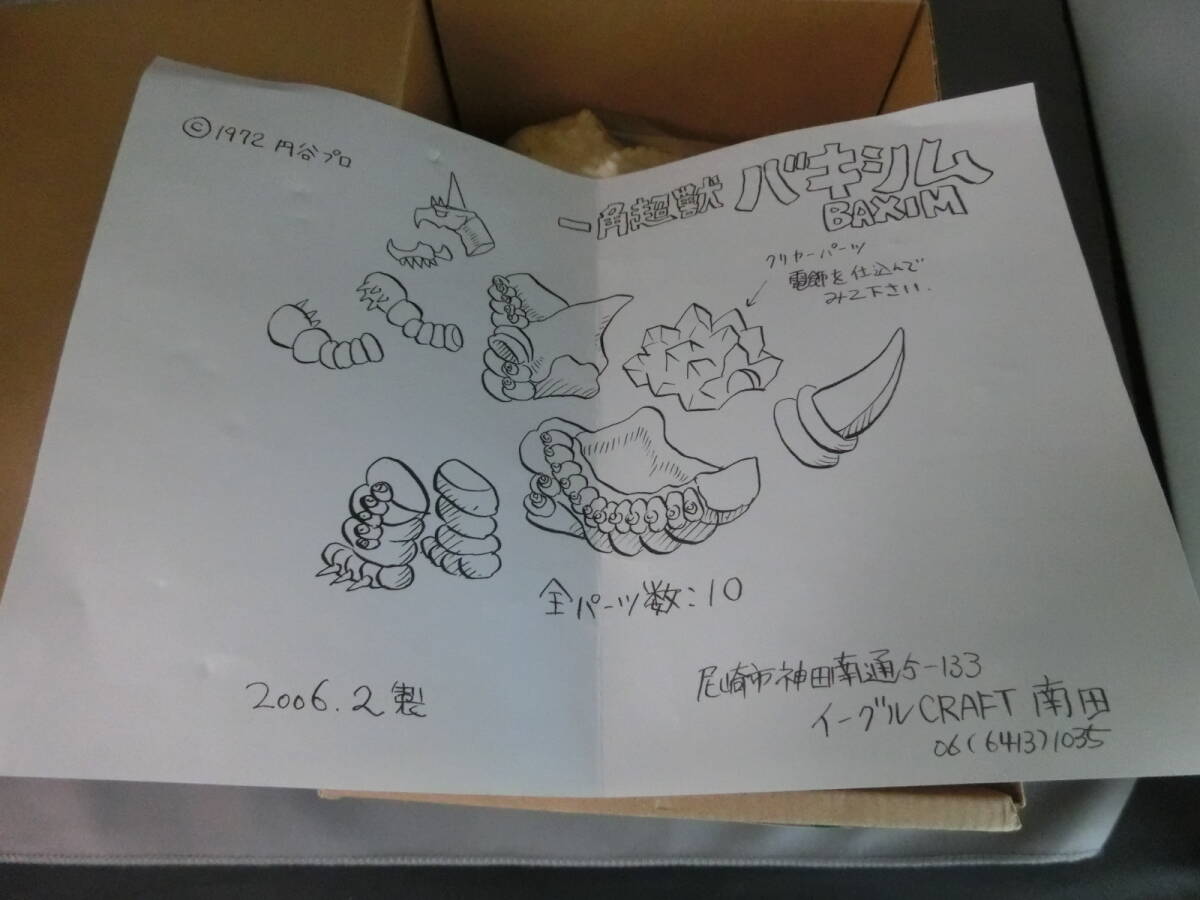 ©1972 円谷プロ
一角超獣 バキシム
BAXIM
クリヤーパーツ
電飾を仕込んで
みて下さい.
全パーツ数:10
2006.2製
尾崎市神田南通5-133
イーグルCRAFT 南田
06(6413)1035